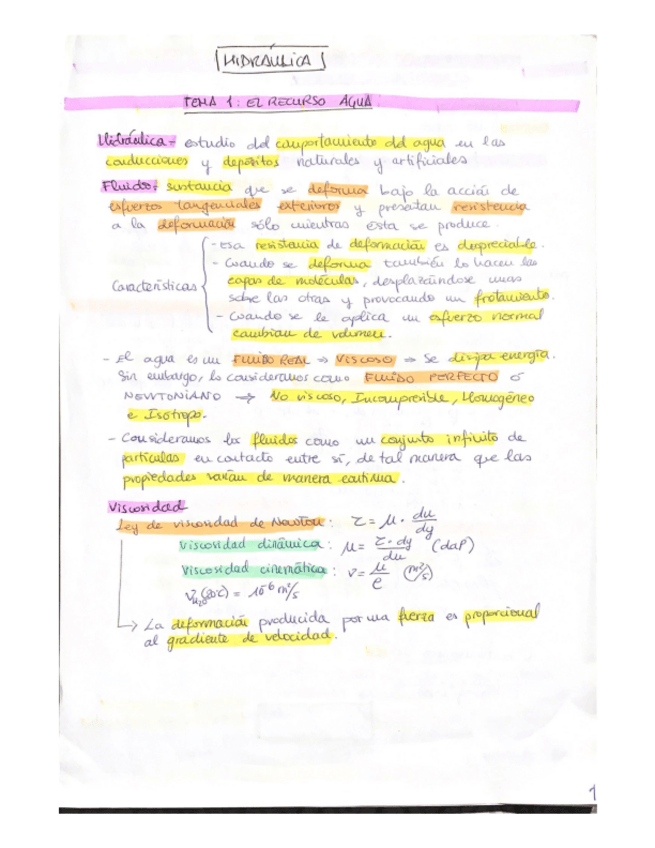 HIDRÁULICA
TEMA 1: EL RECURSO AGUA.
Hidráulica - estudio del comportamiento del agua en las
conducciones y depósitos naturales y artificiales
Fluido: sustancia que se deforma bajo la acción de
esfuerzos tangenciales exteriores y presentan resistencia
a la deformación sólo mientras esta se produce.
- Esa resistencia de deformación es despreciable.
- Cuando se deforma también lo hacen las
capas de moléculas, desplazándose unas
Características
sobre las otras y provocando un frotamiento.
- Cuando se le aplica un esfuerzo normal
cambian de volumen.
- El agua es un FLUIDO REAL ⇒ VISCOSO ⇒ Se disipa energía.
Sin embargo, lo consideramos como FLUIDO PERFECTO ó
NEWTONIANO → No viscoso, Incompresible, Homogéneo
e Isótropo.
- Consideramos los fluidos como un conjunto infinito de
partículas en contacto entre sí, de tal manera que las
propiedades varían de manera continua.
Viscosidad
Ley de viscosidad de Newton: τ = μ · du/dy
Viscosidad dinámica: μ = τ · dy/du (daP)
Viscosidad cinemática: ν = μ/ρ (m²/s)
ν H₂O (20°C) = 10⁻⁶ m²/s
→ La deformación producida por una fuerza es proporcional
al gradiente de velocidad.
1